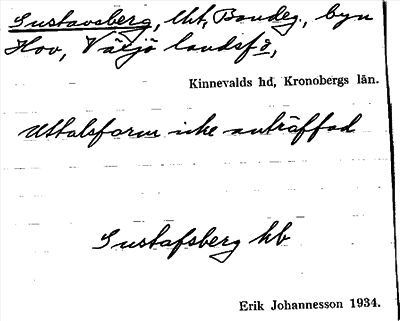 Gustavsberg, lht, Bondeg., byn
Hov, Växjö landsfö,
Kinnevalds hd, Kronobergs län.
Uttalsform icke anträffad
Gustafsberg hb
Erik Johannesson 1934.